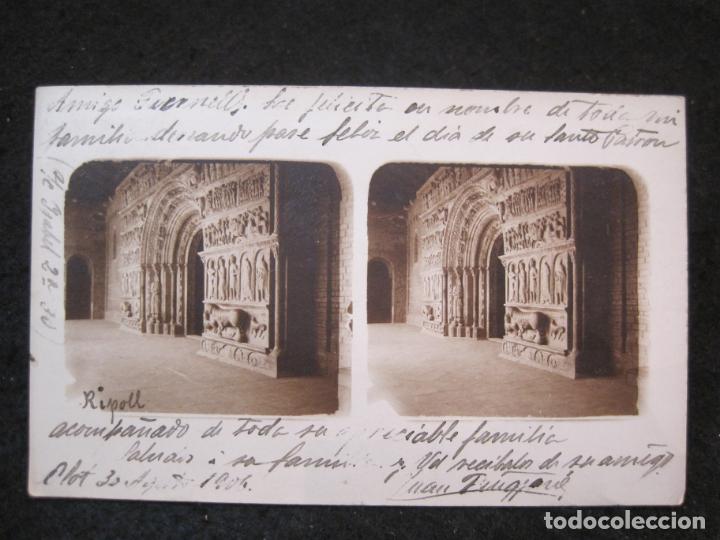 Amigo le felicita en nombre de toda mi
familia deseando pase feliz el día de su Santo Patron
Ripoll
acompañado de toda su apreciable familia
Saludos a su familia y Vd recibalos de su amigo
Clot 30 Agosto 1906.
Juan
todocoleccion.net